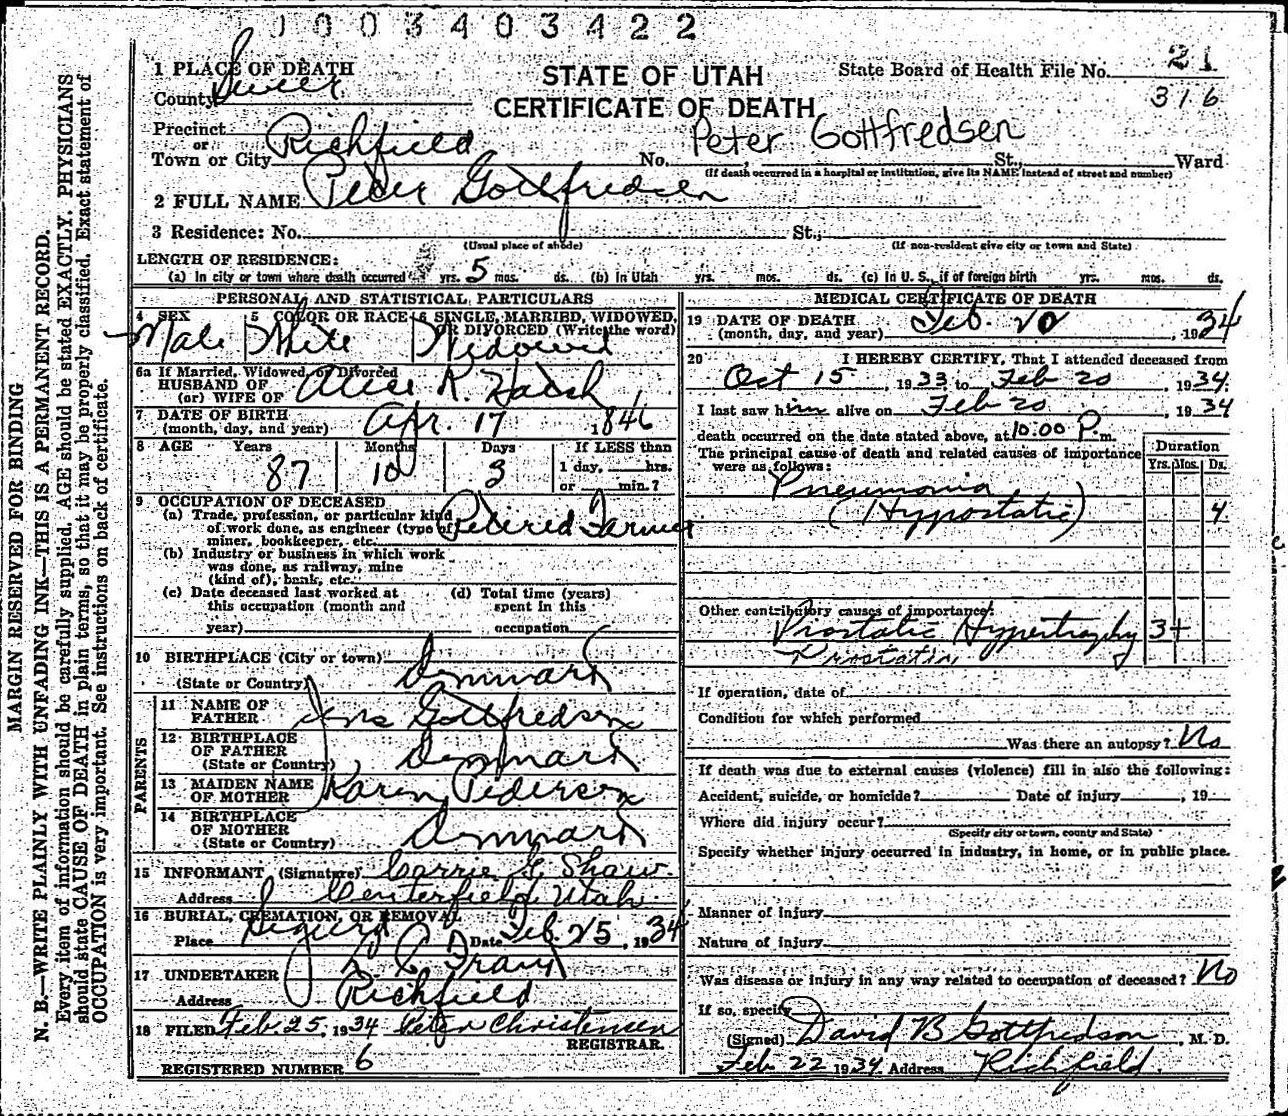 1003403422
1 PLACE OF DEATH
County Sevier
STATE OF UTAH
CERTIFICATE OF DEATH
State Board of Health File No. 21
316
Precinct
or
Town or City Richfield No. St., Ward
Peter Gottfredsen
(If death occurred in a hospital or institution, give its NAME instead of street and number)
2 FULL NAME Peter Gottfredsen
3 Residence: No. St.,
(Usual place of abode) (If non-resident give city or town and State)
LENGTH OF RESIDENCE:
(a) In city or town where death occurred yrs. 5 mos. ds. (b) In Utah yrs. mos. ds. (c) In U. S., if of foreign birth yrs. mos. ds.
PERSONAL AND STATISTICAL PARTICULARS
4 SEX 5 COLOR OR RACE 6 SINGLE, MARRIED, WIDOWED, OR DIVORCED (Write the word)
Male White Widowed
6a If Married, Widowed, or Divorced
HUSBAND OF
(or) WIFE OF Alice K.
7 DATE OF BIRTH
(month, day, and year) Apr. 17 1846
8 AGE Years Months Days If LESS than
87 10 3 1 day, hrs.
or min.?
9 OCCUPATION OF DECEASED
(a) Trade, profession, or particular kind
of work done, as engineer (type of
miner, bookkeeper, etc. Retired Farmer
(b) Industry or business in which work
was done, as railway, mine
(kind of), bank, etc.
(c) Date deceased last worked at
this occupation (month and
year)
(d) Total time (years)
spent in this
occupation
10 BIRTHPLACE (City or town)
(State or Country) Denmark
PARENTS
11 NAME OF
FATHER Jens Gottfredsen
12 BIRTHPLACE
OF FATHER
(State or Country) Denmark
13 MAIDEN NAME
OF MOTHER Karen Pedersen
14 BIRTHPLACE
OF MOTHER
(State or Country) Denmark
15 INFORMANT (Signature) Carrie G. Shaw.
Address Centerfield, Utah
16 BURIAL, CREMATION, OR REMOVAL
Place Sigurd Date Feb. 25, 1934
17 UNDERTAKER
Address Richfield
18 FILED Feb. 25, 1934 Peter Christensen
REGISTRAR.
REGISTERED NUMBER 6
MEDICAL CERTIFICATE OF DEATH
19 DATE OF DEATH
(month, day, and year) Feb. 20, 1934
20 I HEREBY CERTIFY, That I attended deceased from
Oct 15, 1933 to Feb 20, 1934.
I last saw him alive on Feb 20, 1934
death occurred on the date stated above, at 10:00 P. m.
The principal cause of death and related causes of importance
were as follows:
Duration
Yrs. Mos. Ds.
Pneumonia
(Hypostatic) 4
Other contributory causes of importance:
Prostatic Hypertrophy 3+
If operation, date of
Condition for which performed
Was there an autopsy? No
If death was due to external causes (violence) fill in also the following:
Accident, suicide, or homicide? Date of injury , 19
Where did injury occur?
(Specify city or town, county and State)
Specify whether injury occurred in industry, in home, or in public place.
Manner of injury
Nature of injury
Was disease or injury in any way related to occupation of deceased? No
If so, specify
(Signed) David B Gottfredson, M. D.
Feb 22 1934 Address Richfield.
MARGIN RESERVED FOR BINDING
N. B.—WRITE PLAINLY WITH UNFADING INK—THIS IS A PERMANENT RECORD.
Every item of information should be carefully supplied. AGE should be stated EXACTLY. PHYSICIANS
should state CAUSE OF DEATH in plain terms, so that it may be properly classified. Exact statement of
OCCUPATION is very important. See instructions on back of certificate.